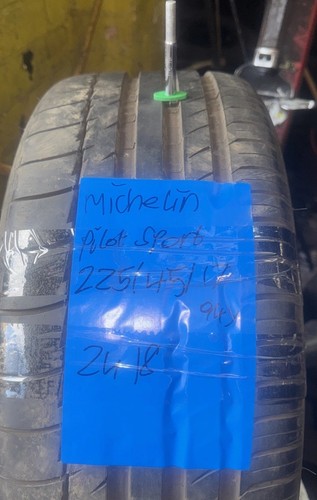 Michelin
pilot Sport
225/45/17
94
2418